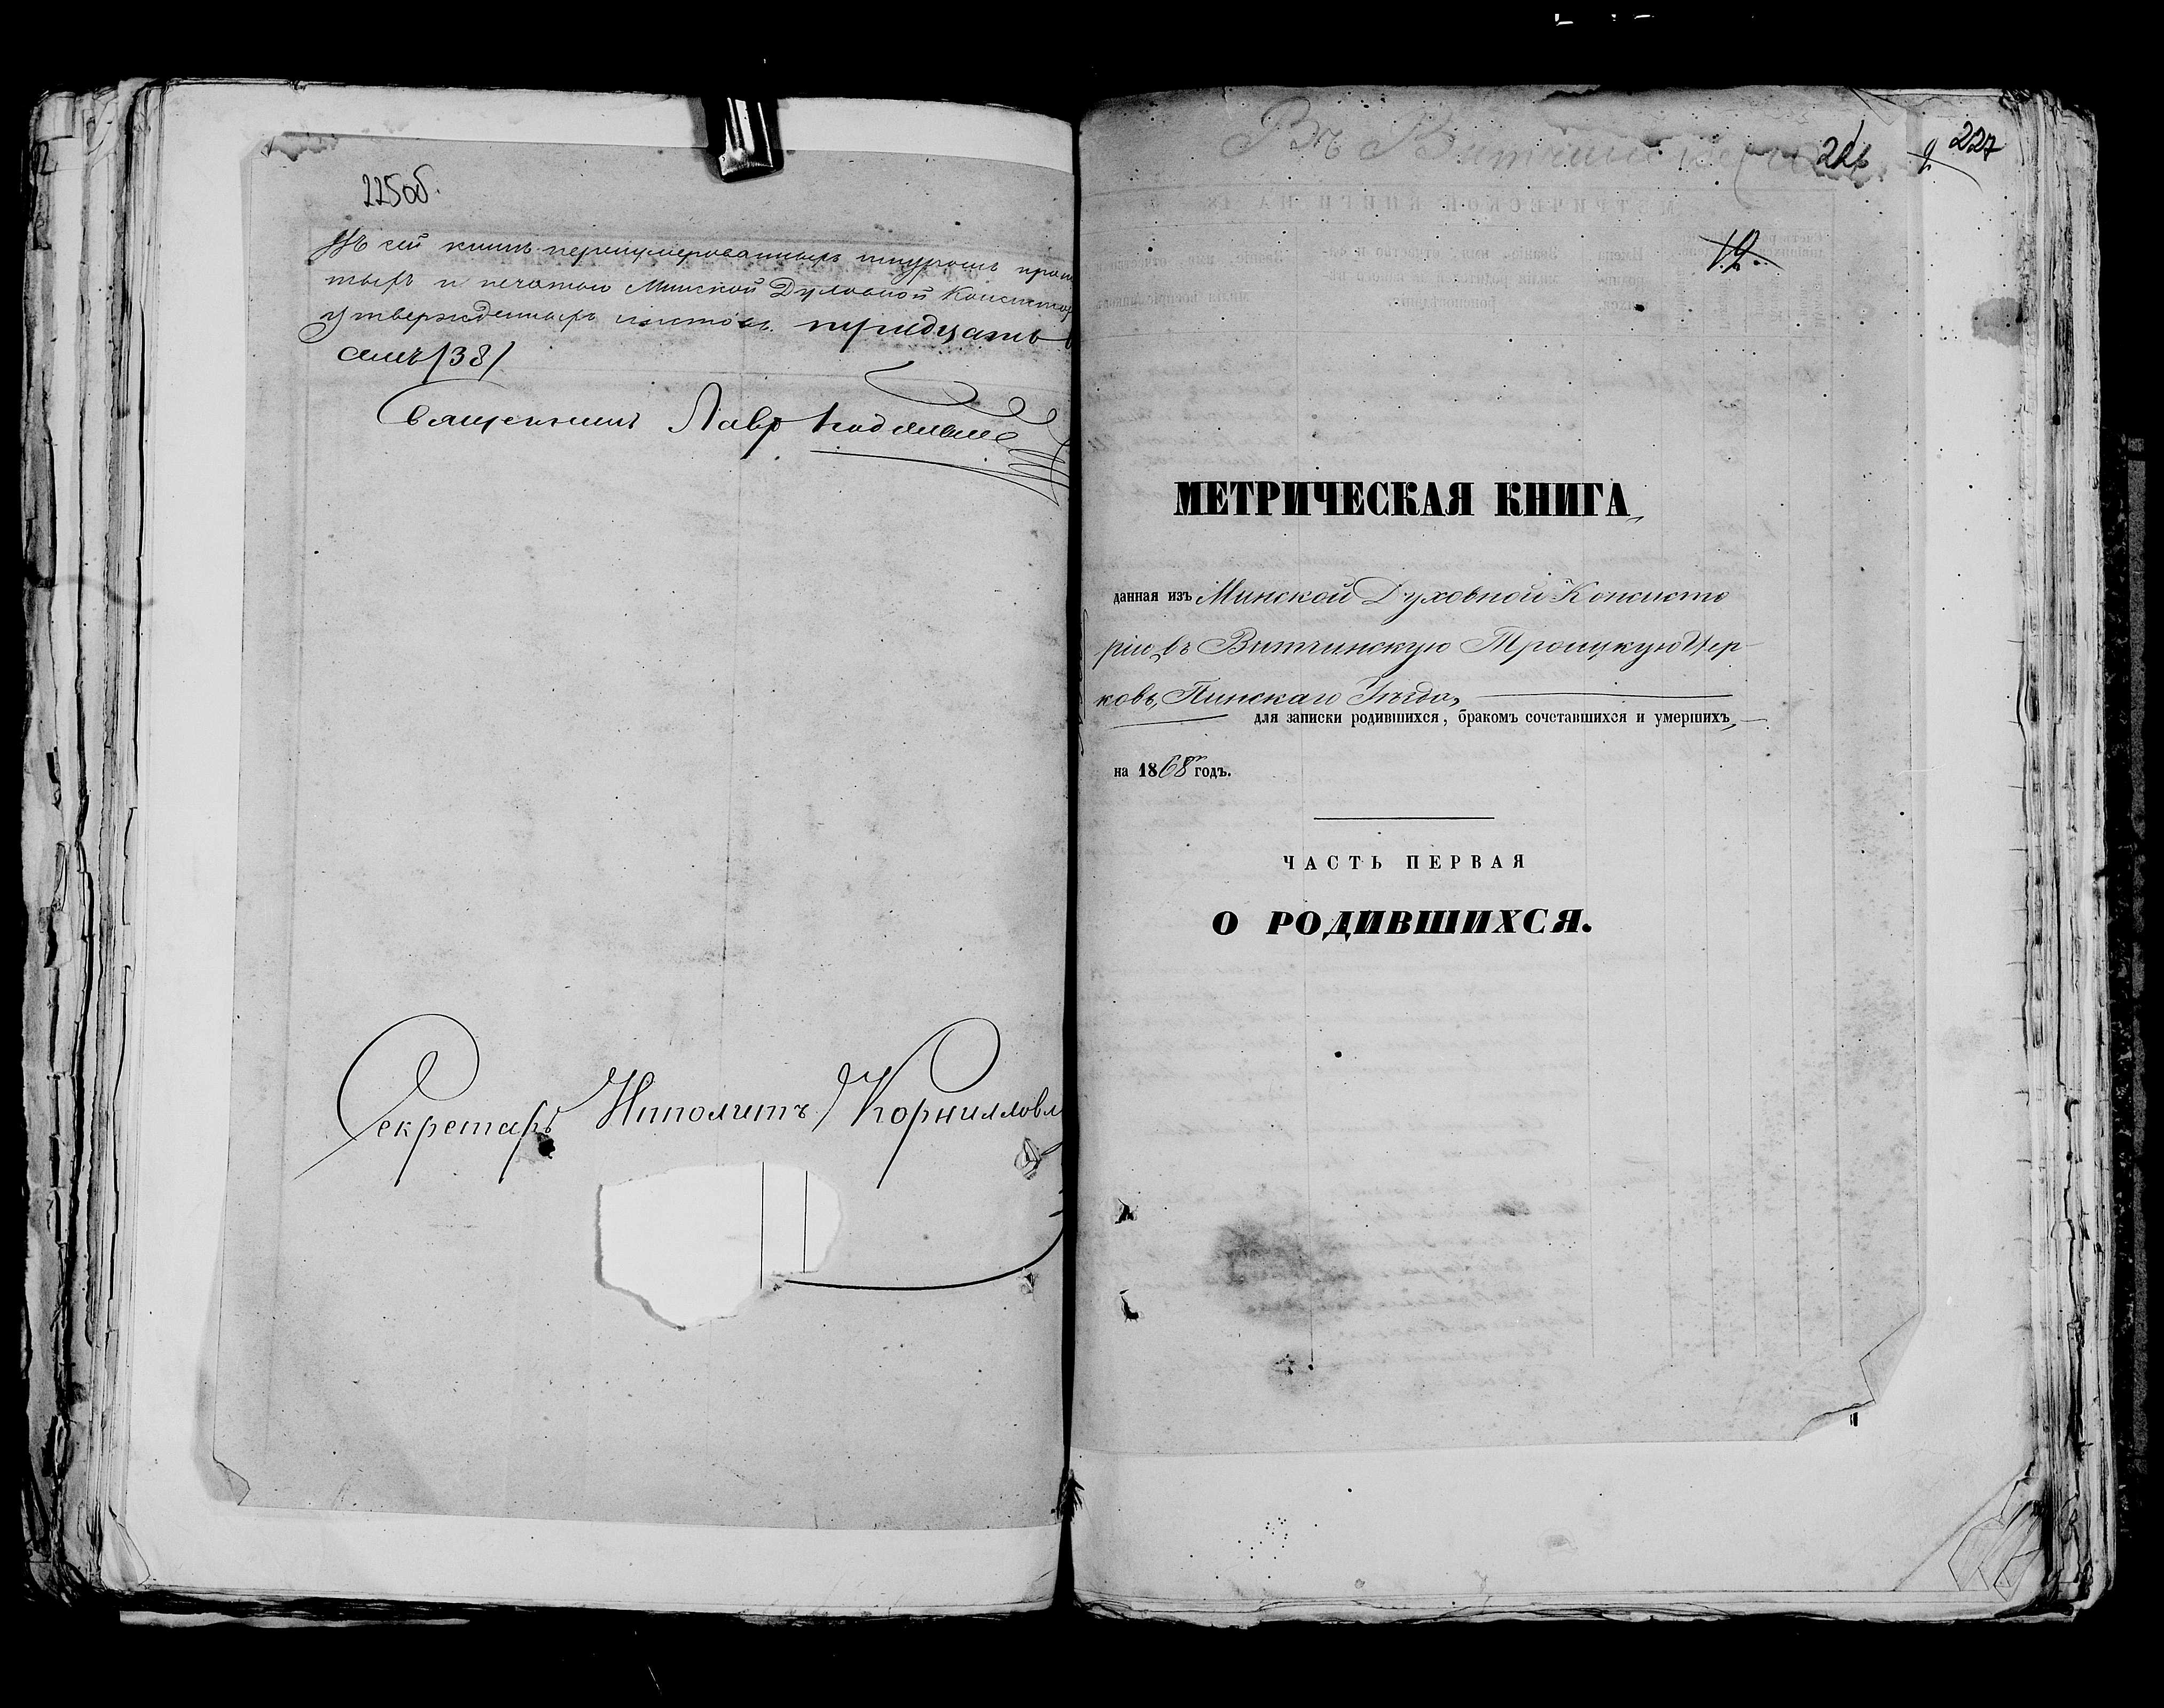 225об.
Въ сей книгѣ перенумерованныхъ шнуромъ
тыхъ и печатью Минской Духовной
утвержденныхъ листовъ тридцать
семь /38/
Священникъ Лавр
Секретарь Ипполитъ
227
12.
МЕТРИЧЕСКАЯ КНИГА,
данная изъ Минской Духовной Консисто
ріи, въ Витчинскую Троицкую Цер-
ковь, Пинскаго Уѣзда,
для записки родившихся, бракомъ сочетавшихся и умершихъ,
на 1868й годъ.
ЧАСТЬ ПЕРВАЯ
О РОДИВШИХСЯ.